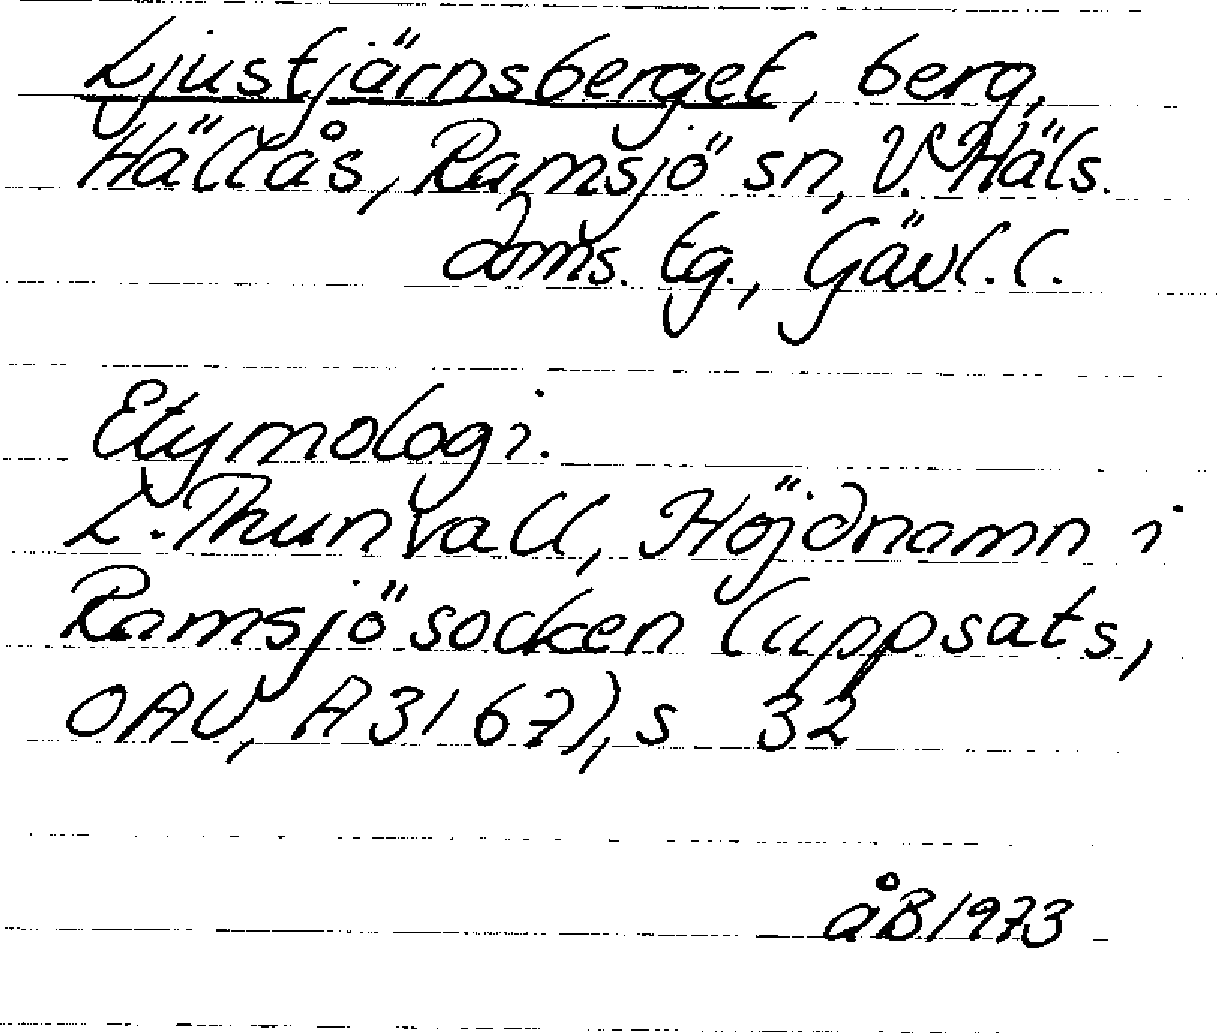 Ljustjärnsberget, berg,
Hällås, Ramsjö sn, V. Häls.
doms. tg., Gävl. l.
Etymologi.
L. Thunvall, Höjdnamn i
Ramsjö socken (uppsats,
OAU, A3167), s 32
åB 1973